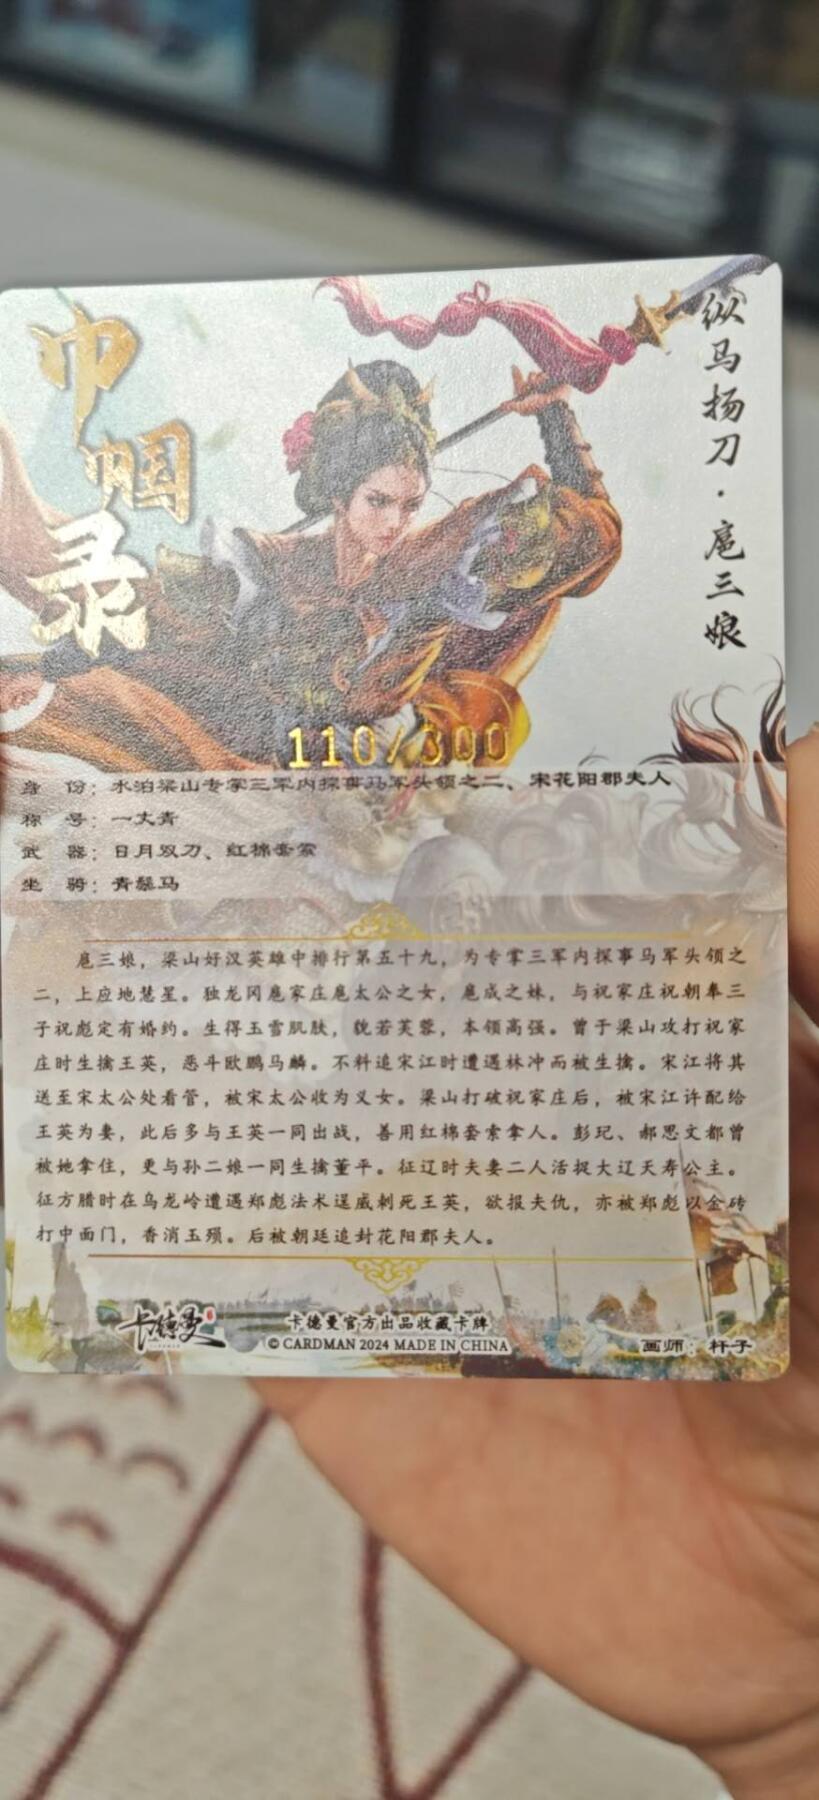 巾帼录
纵马扬刀·扈三娘
110/300
身 份：水泊梁山专掌三军内探事马军头领之二、宋花阳郡夫人
称 号：一丈青
武 器：日月双刀、红棉套索
坐 骑：青鬃马
扈三娘，梁山好汉英雄中排行第五十九，为专掌三军内探事马军头领之
二，上应地慧星。独龙冈扈家庄扈太公之女，扈成之妹，与祝家庄祝朝奉三
子祝彪定有婚约。生得玉雪肌肤，貌若芙蓉，本领高强。曾于梁山攻打祝家
庄时生擒王英，恶斗欧鹏马麟。不料追宋江时遭遇林冲而被生擒。宋江将其
送至宋太公处看管，被宋太公收为义女。梁山打破祝家庄后，被宋江许配给
王英为妻，此后多与王英一同出战，善用红棉套索拿人。彭玘、郝思文都曾
被她拿住，更与孙二娘一同生擒董平。征辽时夫妻二人活捉大辽天寿公主。
征方腊时在乌龙岭遭遇郑彪法术逞威刺死王英，欲报夫仇，亦被郑彪以金砖
打中面门，香消玉殒。后被朝廷追封花阳郡夫人。
卡德曼
卡德曼官方出品收藏卡牌
© CARDMAN 2024 MADE IN CHINA
画师：杆子